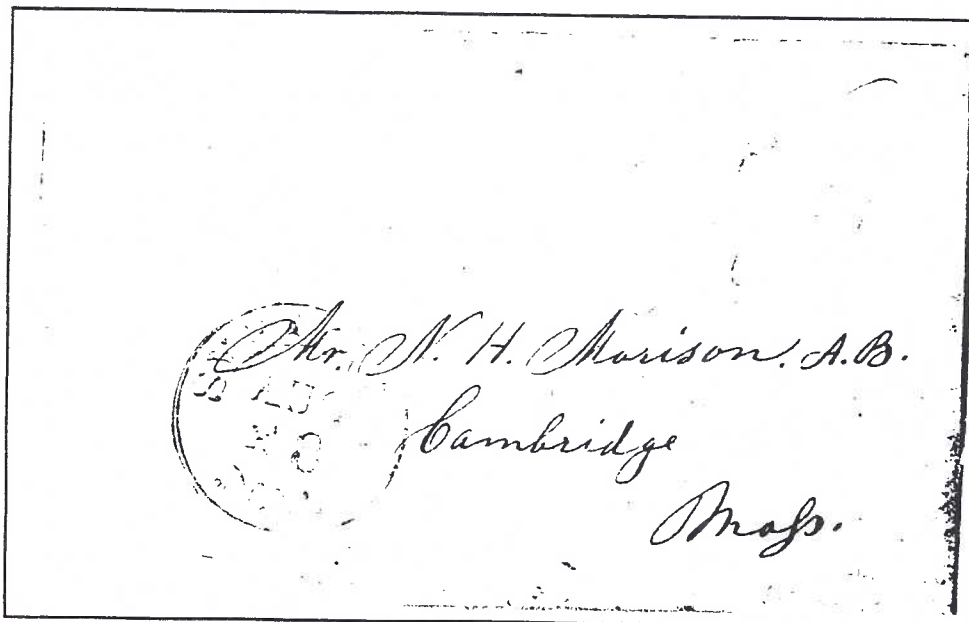 Mr. N. H. Morison. A.B.
Cambridge
Mass.